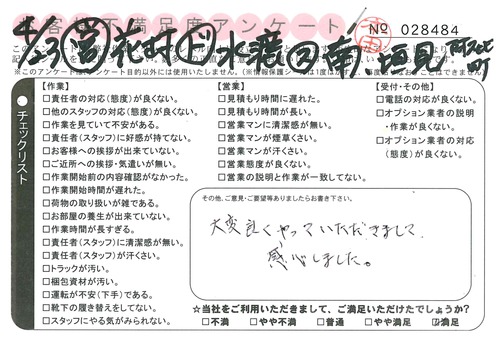 お客様不満足度アンケート
№ 028484
4/23
※このアンケート
【作業】
□責任者の対応(態度)が良くない。
□他のスタッフの対応(態度)が良くない。
□作業を見ていて不安がある。
□責任者(スタッフ)に好感が持てない。
□お客様への挨拶が出来ていない。
□ご近所への挨拶・気遣いが無い。
□作業開始前の内容確認がなかった。
□作業開始時間が遅れた。
□荷物の取り扱いが雑である。
□お部屋の養生が出来ていない。
□作業時間が長すぎる。
□責任者(スタッフ)に清潔感が無い。
□責任者(スタッフ)が汗くさい。
□トラックが汚い。
□梱包資材が汚い。
□運転が不安(下手)である。
□靴下の履き替えをしてない。
□スタッフにやる気がみられない。
【営業】
□見積もり時間に遅れた。
□見積もり時間が長い。
□営業マンに清潔感が無い。
□営業マンが煙草くさい。
□営業マンが汗くさい。
□営業態度が良くない。
□営業の説明と作業が一致してない。
【受付・その他】
□電話の対応が良くない。
□オプション業者の説明
・作業が良くない。
□オプション業者の対応
(態度)が良くない。
チェックリスト
その他、ご意見・ご要望等ありましたらお書き下さい。
大変良くやっていただきまして、
感心しました。
☆当社をご利用いただきまして、ご満足いただけたでしょうか?
□不満 □やや不満 □普通 □やや満足 □満足